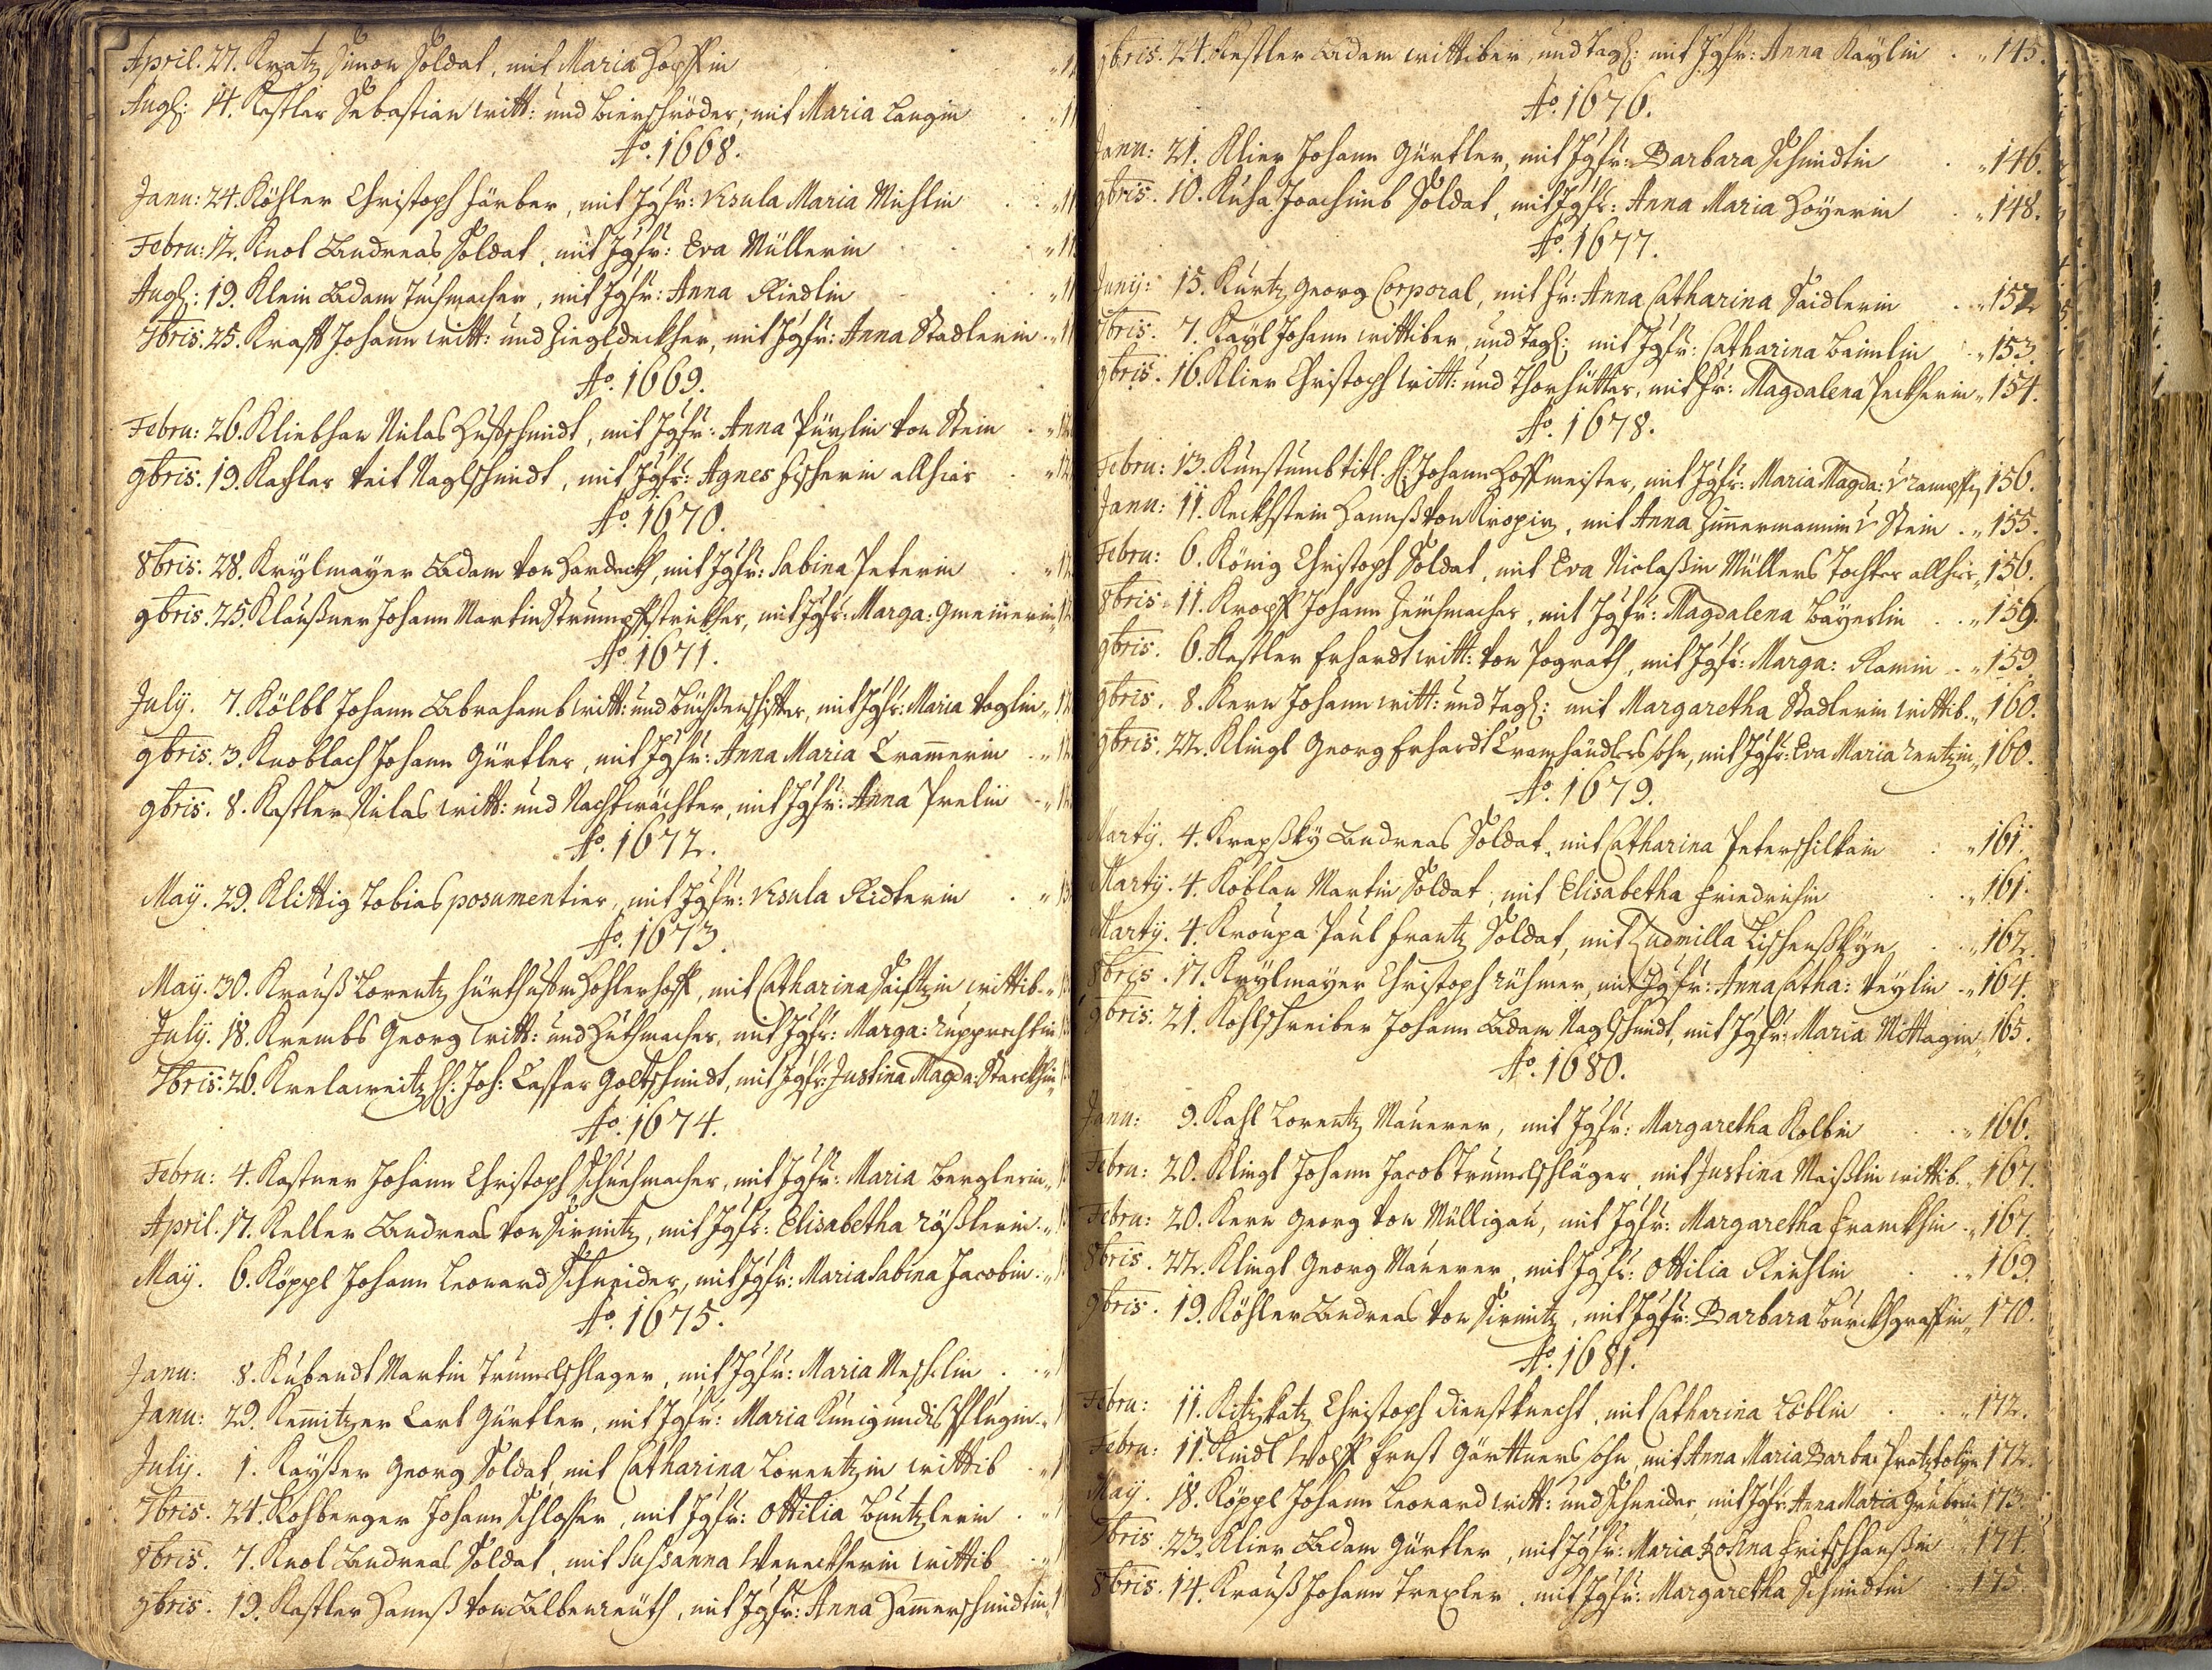 April. 27. Kratz Simon Soldat, mit Maria Hopffin
Augs: 14. Kestler Sebastian witt: und Bierschröder, mit Maria Langin
Ao. 1668.
Janu: 24. Köhler Christoph färber, mit Jgfr: Ursula Maria Michlin
Febru: 12. Knol Andreas Soldat, mit Jgfr: Eva Müllerin
Augs: 19. Klein Adam Tuchmacher, mit Jgfr: Anna Riedlin
7bris. 25. Krafft Johann witt: und Ziegldeckher, mit Jgfr: Anna Stadlerin
Ao. 1669.
Febru: 26. Kliebhan Niclas Huffschmidt, mit Jgfr: Anna von Stein
9bris. 19. Kachler Veit Naglschmidt, mit Jgfr: Agnes Fischerin allhier
Ao. 1670.
8bris. 28. Krÿlmayer Adam von Hardeckh, mit Jgfr: Sabina Peterin
9bris. 25. Klaußner Johann Martin Strumpffstrickher, mit Jgfr: Marga: Gmeinerin
Ao. 1671.
July. 7. Kölbl Johann Abrahamb witt: und Büchßenschiffter, mit Jgfr: Maria Voglin
9bris. 3. Knoblach Johann Gürtler, mit Jgfr: Anna Maria Cramerin
9bris. 8. Kestler Niclas witt: und Nachtwächter, mit Jgfr: Anna
Ao. 1672.
Maÿ. 29. Klittig Tobias posamentier, mit Jgfr: Ursula Ridterin
Ao. 1673.
Maÿ. 30. Krauß Lorentz Hohlerhoff, mit Catharina wittib
July. 18. Krembs Georg witt: und Huthmacher, mit Jgfr: Marga: Rupprechtin
7bris. 26. H: Joh: Caspar Goltschmidt, mit Jgfr: Justina Magda: Starckhin
Ao. 1674.
Febru: 4. Kastner Johann Christoph Schuchmacher, mit Jgfr: Maria Berglerin
April. 17. Keller Andreas von Sirmitz, mit Jgfr: Elisabetha Rößlerin
Maÿ. 6. Köppl Johann Leonard Schneider, mit Jgfr: Maria Sabina Jacobin
Ao. 1675.
Janu: 8. Kubandt Martin Trumelschlager, mit Jgfr: Maria
Janu: 29. Kemitzer Carl Gürtler, mit Jgfr: Maria Kunigundis Pflugin
Julÿ. 1. Kayßer Georg Soldat, mit Catharina Lorentzin wittib
7bris. 24. Kohberger Johann Schlosser, mit Jgfr: Ottilia Buntzlerin
8bris. 7. Knol Andreas Soldat, mit Suhsanna wittib
9bris. 19. Kestler Hannß von Albenreuth, mit Jgfr: Anna Hamerschmidtin
9bris. 24. Kestler Adam wittiber, und Tagl: mit Jgfr: Anna Kaylin 145.
Ao. 1676.
Janu: 21. Klier Johann Gürtler, mit Jgfr: Barbara Schmidtin 146.
9bris. 10. Kuha Joachimb Soldat, mit Jgfr: Anna Maria Hoyerin 148.
Ao. 1677.
Junÿ: 15. Kurtz Georg Corporal, mit fr: Anna Catharina Saidlerin 152
7bris. 7. Kayl Johann wittiber, und Tagl: mit Jgfr: Catharina Baimlin 153.
9bris. 16. Klier Christoph witt: und Thorhütter, mit Fr: Magdalena Peckherin 154.
Ao. 1678.
Febru: 13. Kunstumb titl: H: Johann Hoffmeister, mit Jgfr: Maria Magda: 156.
Janu: 11. Keckhstein Hannß von Kropitz, mit Anna Zimermannin v Stein 155.
Febru: 6. König Christoph Soldat, mit Eva Niclaßin Müllers Tochter allhier 156.
8bris. 11. Kropff Johann Zeuchmacher, mit Jgfr: Magdalena Bäyerlin 159.
9bris. 6. Kestler Erhardt witt: von Pograth, mit Jgfr: Marga: Ramin 159.
9bris. 8. Kern Johann witt: und Tagl: mit Margaretha Stadlerin wittib. 160.
9bris. 22. Klingl Georg Erhardt Cramhändlers sohn, mit Jgfr: Eva Maria Rentzin 160.
Ao. 1679.
Martÿ. 4. Krapßkÿ Andreas Soldat, mit Catharina Peterschilkain 161.
Martÿ. 4. Koblau Martin Soldat, mit Elisabetha Friedrichin 161.
Martÿ. 4. Kroupa Paul Frantz Soldat, mit Ludmilla 162.
8bris. 17. Krÿlmayer Christoph rühmer, mit Jgfr: Anna Catha: Veylin 164.
9bris. 21. Kohlschreiber Johann Adam Naglschmidt, mit Jgfr: Maria Mittagin 165.
Ao. 1680.
Janu: 9. Kahl Lorentz Maurer, mit Jgfr: Margaretha Kolbin 166.
Febru: 20. Klingl Johann Jacob Trumelschläger, mit Justina Maißlin wittib. 167.
Febru: 20. Kern Georg von Mülligau, mit Jgfr: Margaretha Franckhin 167.
8bris. 22. Klingl Georg Maurer, mit Jgfr: Ottilia Reichlin 169.
9bris. 19. Köhler Andreas von Sirmitz, mit Jgfr: Barbara Burckhgraffin 170.
Ao. 1681.
Febru: 11. Kitzkatz Christoph dienstknecht, mit Catharina Löblin 172.
Febru: 11. Kindl Wolff Ernst Gärttners sohn, mit Anna Maria Barba: 172.
Maÿ. 18. Köppl Johann Leonard witt: und Schneider, mit Jgfr: Anna Maria Gruberin 173.
7bris. 23. Klier Adam Gürtler, mit Jgfr: Maria Rosina Fritschhanßin 174.
8bris. 14. Krauß Johann Trexler, mit Jgfr: Margaretha Schmidtin 175